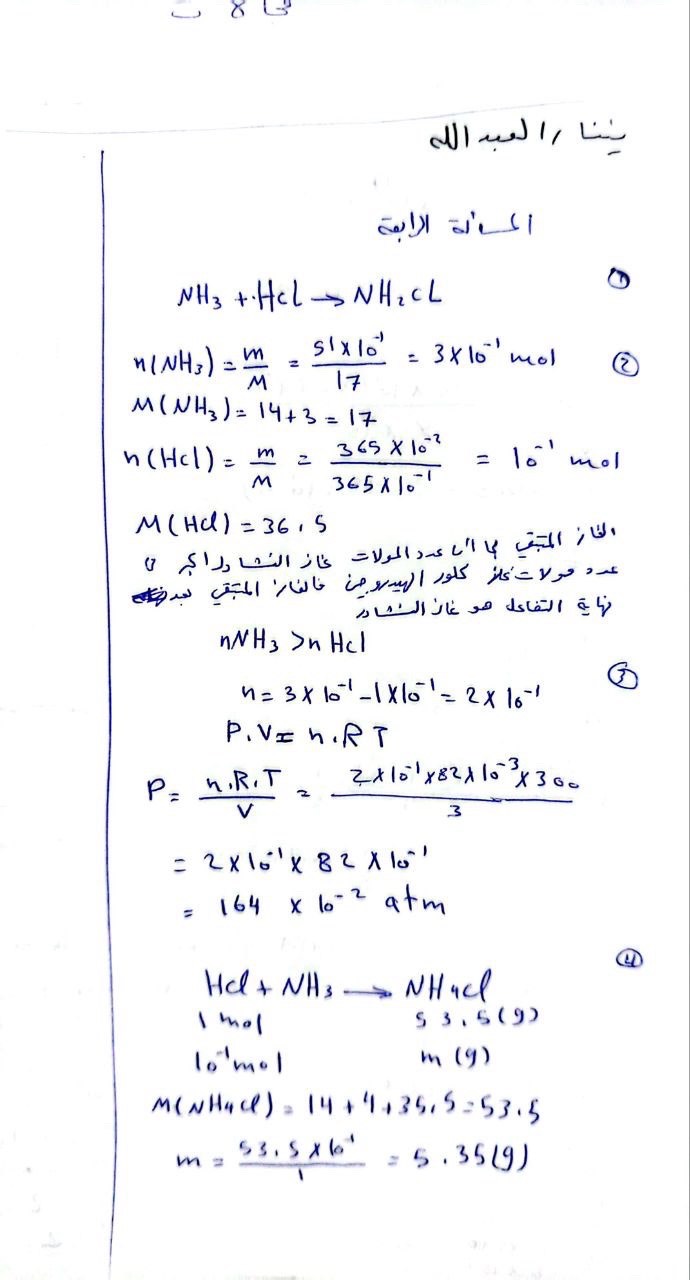 العبد الله
المسألة الرابعة
① NH₃ + HCl → NH₂CL
② n(NH₃) = m/M = 51×10⁻¹/17 = 3×10⁻¹ mol
M(NH₃) = 14+3 = 17
n(HCl) = m/M = 365×10⁻²/365×10⁻¹ = 10⁻¹ mol
M(HCl) = 36,5
الغاز المتبقي بما أن عدد المولات غاز النشادر أكبر
عدد مولات غاز كلور الهيدروجين فالغاز المتبقي بعد
نهاية التفاعل هو غاز النشادر
nNH₃ > nHCl
③ n = 3×10⁻¹ - 1×10⁻¹ = 2×10⁻¹
P.V = n.RT
P = n.R.T/V = 2×10⁻¹×82×10⁻³×300/3
= 2×10⁻¹×82×10⁻¹
= 164 × 10⁻² atm
④
HCl + NH₃ → NH₄Cl
1 mol 53,5(g)
10⁻¹ mol m (g)
M(NH₄Cl) = 14+4+35,5=53.5
m = 53,5×10⁻¹/1 = 5.35(g)